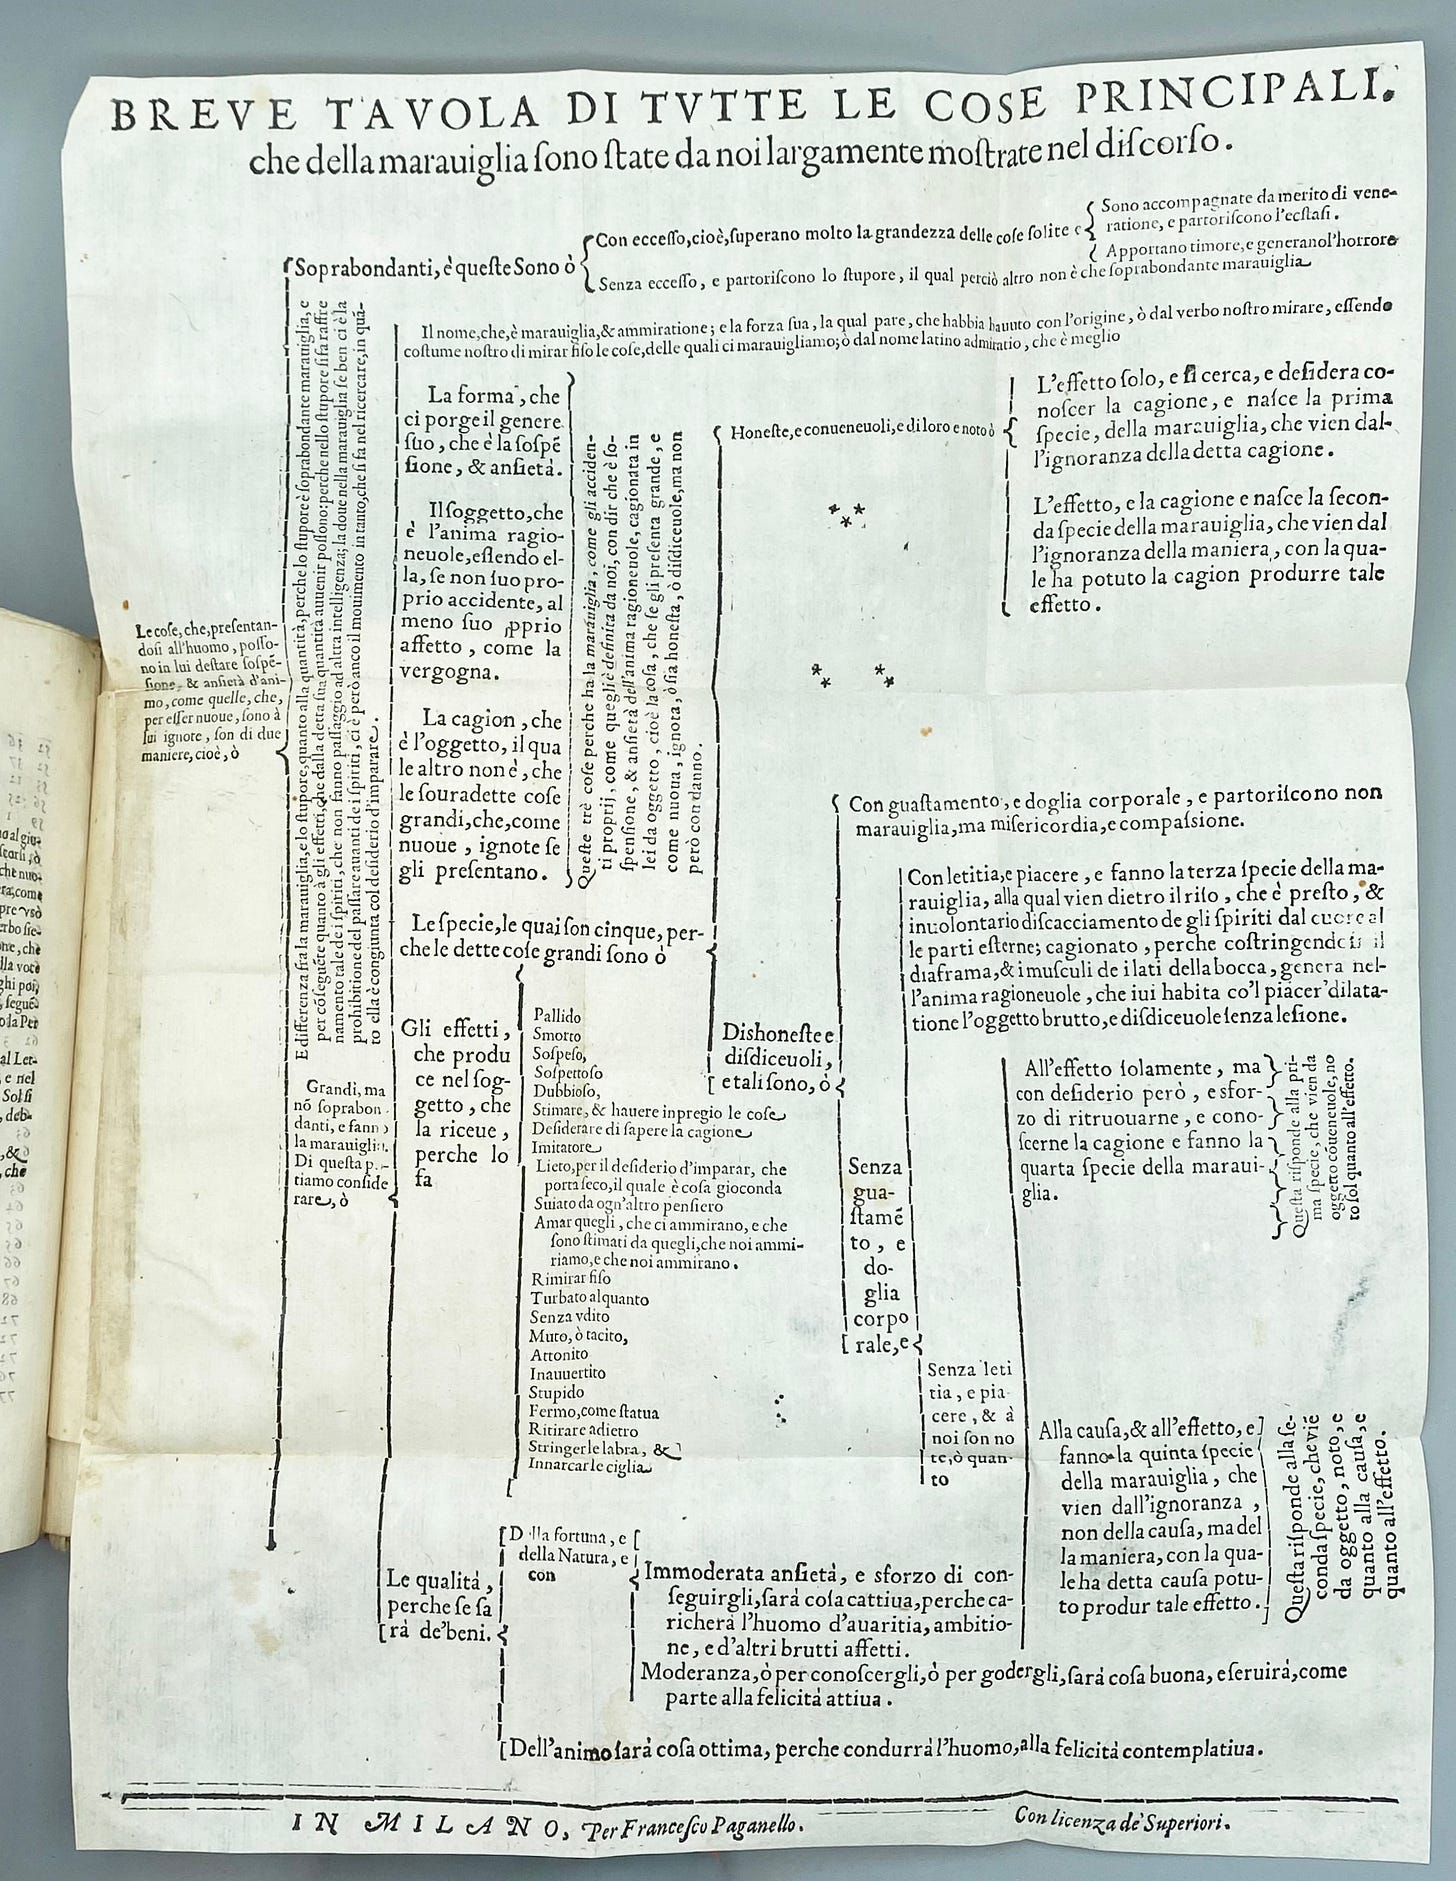 BREVE TAVOLA DI TVTTE LE COSE PRINCIPALI.
che della marauiglia ſono ſtate da noi largamente moſtrate nel diſcorſo.
Le coſe, che, preſentan-
doſi all'huomo, poſſo-
no in lui deſtare ſoſpẽ-
ſione, & anſietà d'ani-
mo, come quelle, che,
per eſſer nuoue, ſono à
lui ignote, ſon di due
maniere, cioè, ò
Soprabondanti, è queſte Sono ò
Con ecceſſo, cioè, ſuperano molto la grandezza delle coſe ſolite e
Sono accompagnate da merito di vene-
ratione, e partoriſcono l'ecſtaſi.
Apportano timore, e generano l'horrore
Senza ecceſſo, e partoriſcono lo ſtupore, il qual perciò altro non è che ſoprabondante marauiglia
E differenza fra la marauiglia, e lo ſtupore, quanto alla quantità, perche lo ſtupore è ſoprabondante marauiglia, e
per cõſeguẽte quanto à gli effetti, che dalla detta ſua quantità auuenir poſſono: perche nello ſtupore ſi fa raffre
namento tale de i ſpiriti, che non fanno paſſaggio ad altra intelligenza; la doue nella marauiglia ſe ben ci è la
prohibitione del paſſare auanti de i ſpiriti, ci è però anco il mouimento in tanto, che ſi fa nel ricercare, in quã-
to ella è congiunta col deſiderio d'imparare.
Grandi, ma
nõ ſoprabon
danti, e fann
la marauiglia.
Di queſta p.-
tiamo conſide
rare, ò
Il nome, che, è marauiglia, & ammiratione; e la forza ſua, la qual pare, che habbia hauuto con l'origine, ò dal verbo noſtro mirare, eſſendo
coſtume noſtro di mirar fiſo le coſe, delle quali ci marauigliamo; ò dal nome latino admiratio, che è meglio
La forma, che
ci porge il genere
ſuo, che è la ſoſpẽ
ſione, & anſietà.
Il ſoggetto, che
è l'anima ragio-
neuole, eſſendo el-
la, ſe non ſuo pro-
prio accidente, al
meno ſuo ꝓprio
affetto, come la
vergogna.
La cagion, che
è l'oggetto, il qua
le altro non è, che
le ſouradette coſe
grandi, che, come
nuoue, ignote ſe
gli preſentano.
Queſte trè coſe perche ha la marauiglia, come gli acciden-
ti proprij, come quegli è definita da noi, con dir che è ſo-
ſpenſione, & anſietà dell'anima ragioneuole, cagionata in
lei da oggetto, cioè la coſa, che ſe gli preſenta grande, e
come nuoua, ignota, ò ſia honeſta, ò diſdiceuole, ma non
però con danno.
Le ſpecie, le quai ſon cinque, per-
che le dette coſe grandi ſono ò
Honeſte, e conueneuoli, e di loro e noto ò
L'effetto ſolo, e ſi cerca, e deſidera co-
noſcer la cagione, e naſce la prima
ſpecie, della marauiglia, che vien dal-
l'ignoranza della detta cagione.
L'effetto, e la cagione e naſce la ſecon-
da ſpecie della marauiglia, che vien dal
l'ignoranza della maniera, con la qua-
le ha potuto la cagion produrre tale
effetto.
* * *
* * * *
Dishoneſte e
diſdiceuoli,
e tali ſono, ò
Con guaſtamento, e doglia corporale, e partoriſcono non
marauiglia, ma miſericordia, e compaſsione.
Senza
gua-
ſtamẽ
to, e
do-
glia
corpo
rale, e
Con letitia, e piacere, e fanno la terza ſpecie della ma-
rauiglia, alla qual vien dietro il riſo, che è preſto, &
inuolontario diſcacciamento de gli ſpiriti dal cuore al
le parti eſterne; cagionato, perche coſtringendo il
diaframa, & i muſculi de i lati della bocca, genera nel-
l'anima ragioneuole, che iui habita co'l piacer dilata-
tione l'oggetto brutto, e diſdiceuole ſenza leſione.
Senza leti
tia, e pia
cere, & à
noi ſon no
te, ò quan-
to
All'effetto ſolamente, ma
con deſiderio però, e sfor-
zo di ritruouarne, e cono-
ſcerne la cagione e fanno la
quarta ſpecie della maraui-
glia.
Queſta riſponde alla pri-
ma ſpecie, che vien da
oggetto cõueneuole, no
to ſol quanto all'effetto.
Alla cauſa, & all'effetto, e
fanno la quinta ſpecie
della marauiglia, che
vien dall'ignoranza,
non della cauſa, ma del
la maniera, con la qua-
le ha detta cauſa potu-
to produr tale effetto.
Queſta riſponde alla ſe-
conda ſpecie, che viẽ
da oggetto, noto, e
quanto alla cauſa, e
quanto all'effetto.
Gli effetti,
che produ
ce nel ſog-
getto, che
la riceue,
perche lo
fa
Pallido
Smorto
Soſpeſo,
Soſpettoſo
Dubbioſo,
Stimare, & hauere in pregio le coſe
Deſiderare di ſapere la cagione
Imitatore
Lieto, per il deſiderio d'imparar, che
porta ſeco, il quale è coſa gioconda
Suiato da ogn'altro penſiero
Amar quegli, che ci ammirano, e che
ſono ſtimati da quegli, che noi ammi-
riamo, e che noi ammirano.
Rimirar fiſo
Turbato alquanto
Senza vdito
Muto, ò tacito,
Attonito
Inauuertito
Stupido
Fermo, come ſtatua
Ritirare adietro
Stringer le labra, &
Innarcar le ciglia
Le qualità,
perche ſe ſa
rà de' beni.
D lla fortuna, e
della Natura, e
con
Immoderata anſietà, e sforzo di con-
ſeguirgli, ſarà coſa cattiua, perche ca-
richerà l'huomo d'auaritia, ambitio-
ne, e d'altri brutti affetti.
Moderanza, ò per conoſcergli, ò per godergli, ſarà coſa buona, e ſeruirà, come
parte alla felicità attiua.
Dell'animo ſarà coſa ottima, perche condurrà l'huomo, alla felicità contemplatiua.
IN MILANO, Per Franceſco Paganello. Con licenza de' Superiori.